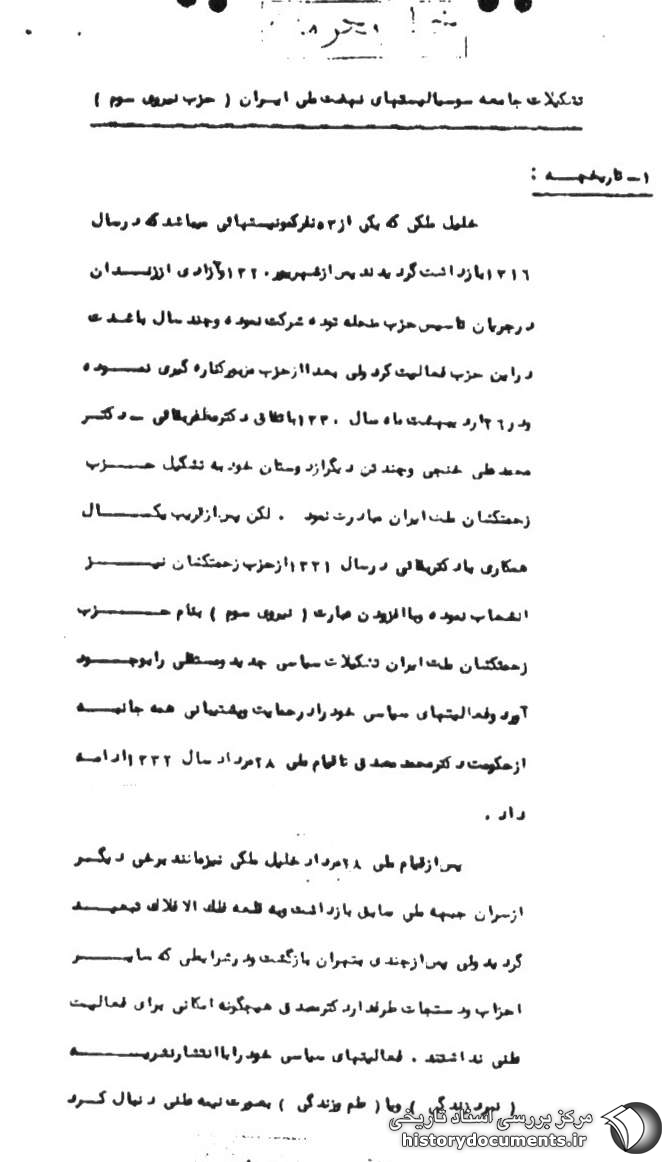 تشکیلات جامعه سوسیالیستهای نهضت ملی ایران ( حزب نیروی سوم )
۱ – تاریخچه :
خلیل ملکی که یکی از ۵۳ نفر کمونیستهائی میباشد که در سال
۱۳۱۶ بازداشت گردیدند پس از شهریور ۱۳۲۰ و آزادی از زندان
در جریان تاسیس حزب منحله توده شرکت نموده و چند سال با شدت
در این حزب فعالیت کرد ولی بعدا از حزب مزبور کناره گیری نموده
و در ۲۶ اردیبهشت ماه سال ۱۳۳۰ با تفاق دکتر مظفر بقائی – دکتر
محمد علی خنجی و چند تن دیگر از دوستان خود به تشکیل حزب
زحمتکشان ملت ایران مبادرت نمود . لکن پس از قریب یکسال
همکاری با دکتر بقائی در سال ۱۳۳۱ از حزب زحمتکشان نیز
انشعاب نموده و با افزودن عبارت ( نیروی سوم ) بنام حزب
زحمتکشان ملت ایران تشکیلات سیاسی جدید و مستقلی را بوجود
آورد و فعالیتهای سیاسی خود را در حمایت و پشتیبانی همه جانبه
از حکومت دکتر محمد مصدق تا قیام ملی ۲۸ مرداد سال ۱۳۳۲ ادامه
داد .
پس از قیام ملی ۲۸ مرداد خلیل ملکی نیز مانند برخی دیگر
از سران جبهه ملی سابق بازداشت و به قلعه فلک الافلاک تبعید
گردید ولی پس از چندی بتهران بازگشت و در شرایطی که سایر
احزاب و دستجات طرفدار دکتر مصدق هیچگونه امکانی برای فعالیت
علنی نداشتند . فعالیتهای سیاسی خود را با انتشار نشریه
( نبرد زندگی ) و یا ( علم و زندگی ) بصورت نیمه علنی دنبال کرد
مرکز بررسی اسناد تاریخی
historydocuments.ir